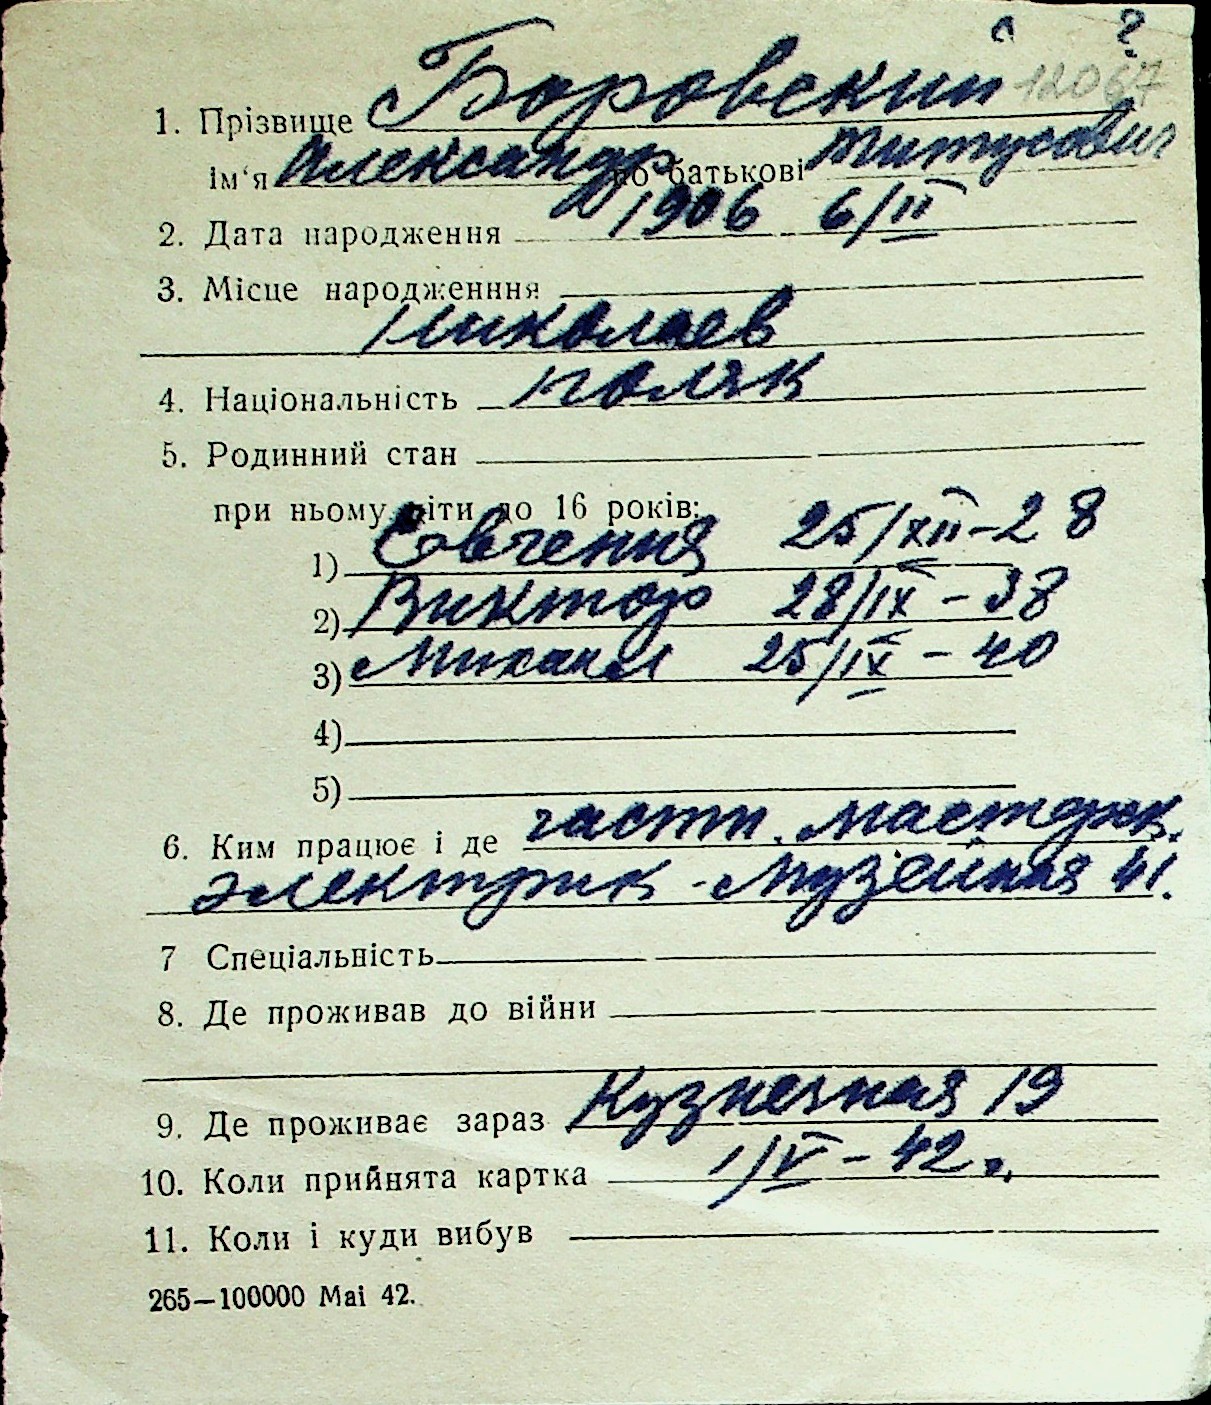 ?
12067
1. Прізвище Боровский
Ім‘я Александр по батькові Титусович
2. Дата народження 1906 6/II
3. Місце народженння
Николаев
4. Національність поляк
5. Родинний стан
при ньому діти до 16 років:
1) Евгения 25/XII-28
2) Виктор 28/IX - 38
3) Михаил 25/IX - 40
4)
5)
6. Ким працює і де частн. мастерск.
электрик - Музейная 41.
7 Спеціальність
8. Де проживав до війни
9. Де проживає зараз Кузнечная 19
10. Коли прийнята картка 1/V - 42 г.
11. Коли і куди вибув
265—100000 Mai 42.